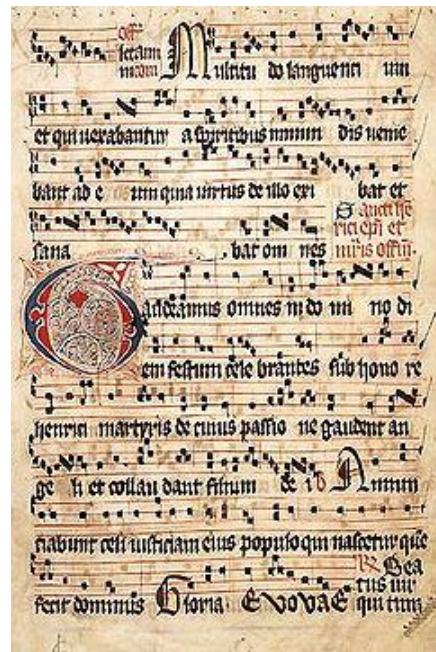 Multitu do languenti um
et qui uexabantur a spiritibus inmun dis uenie
bant ad e um quia uirtus de illo exi bat et
sana bat om nes
Gaudeamus omnes in do mi no di
em festum cele brantes sub hono re
henrici martyris de cuius passio ne gaudent an
ge li et collau dant filium de i Annun
ciabunt celi iusticiam eius populo qui nascetur que
fecit dominus Gloria EVOVAE